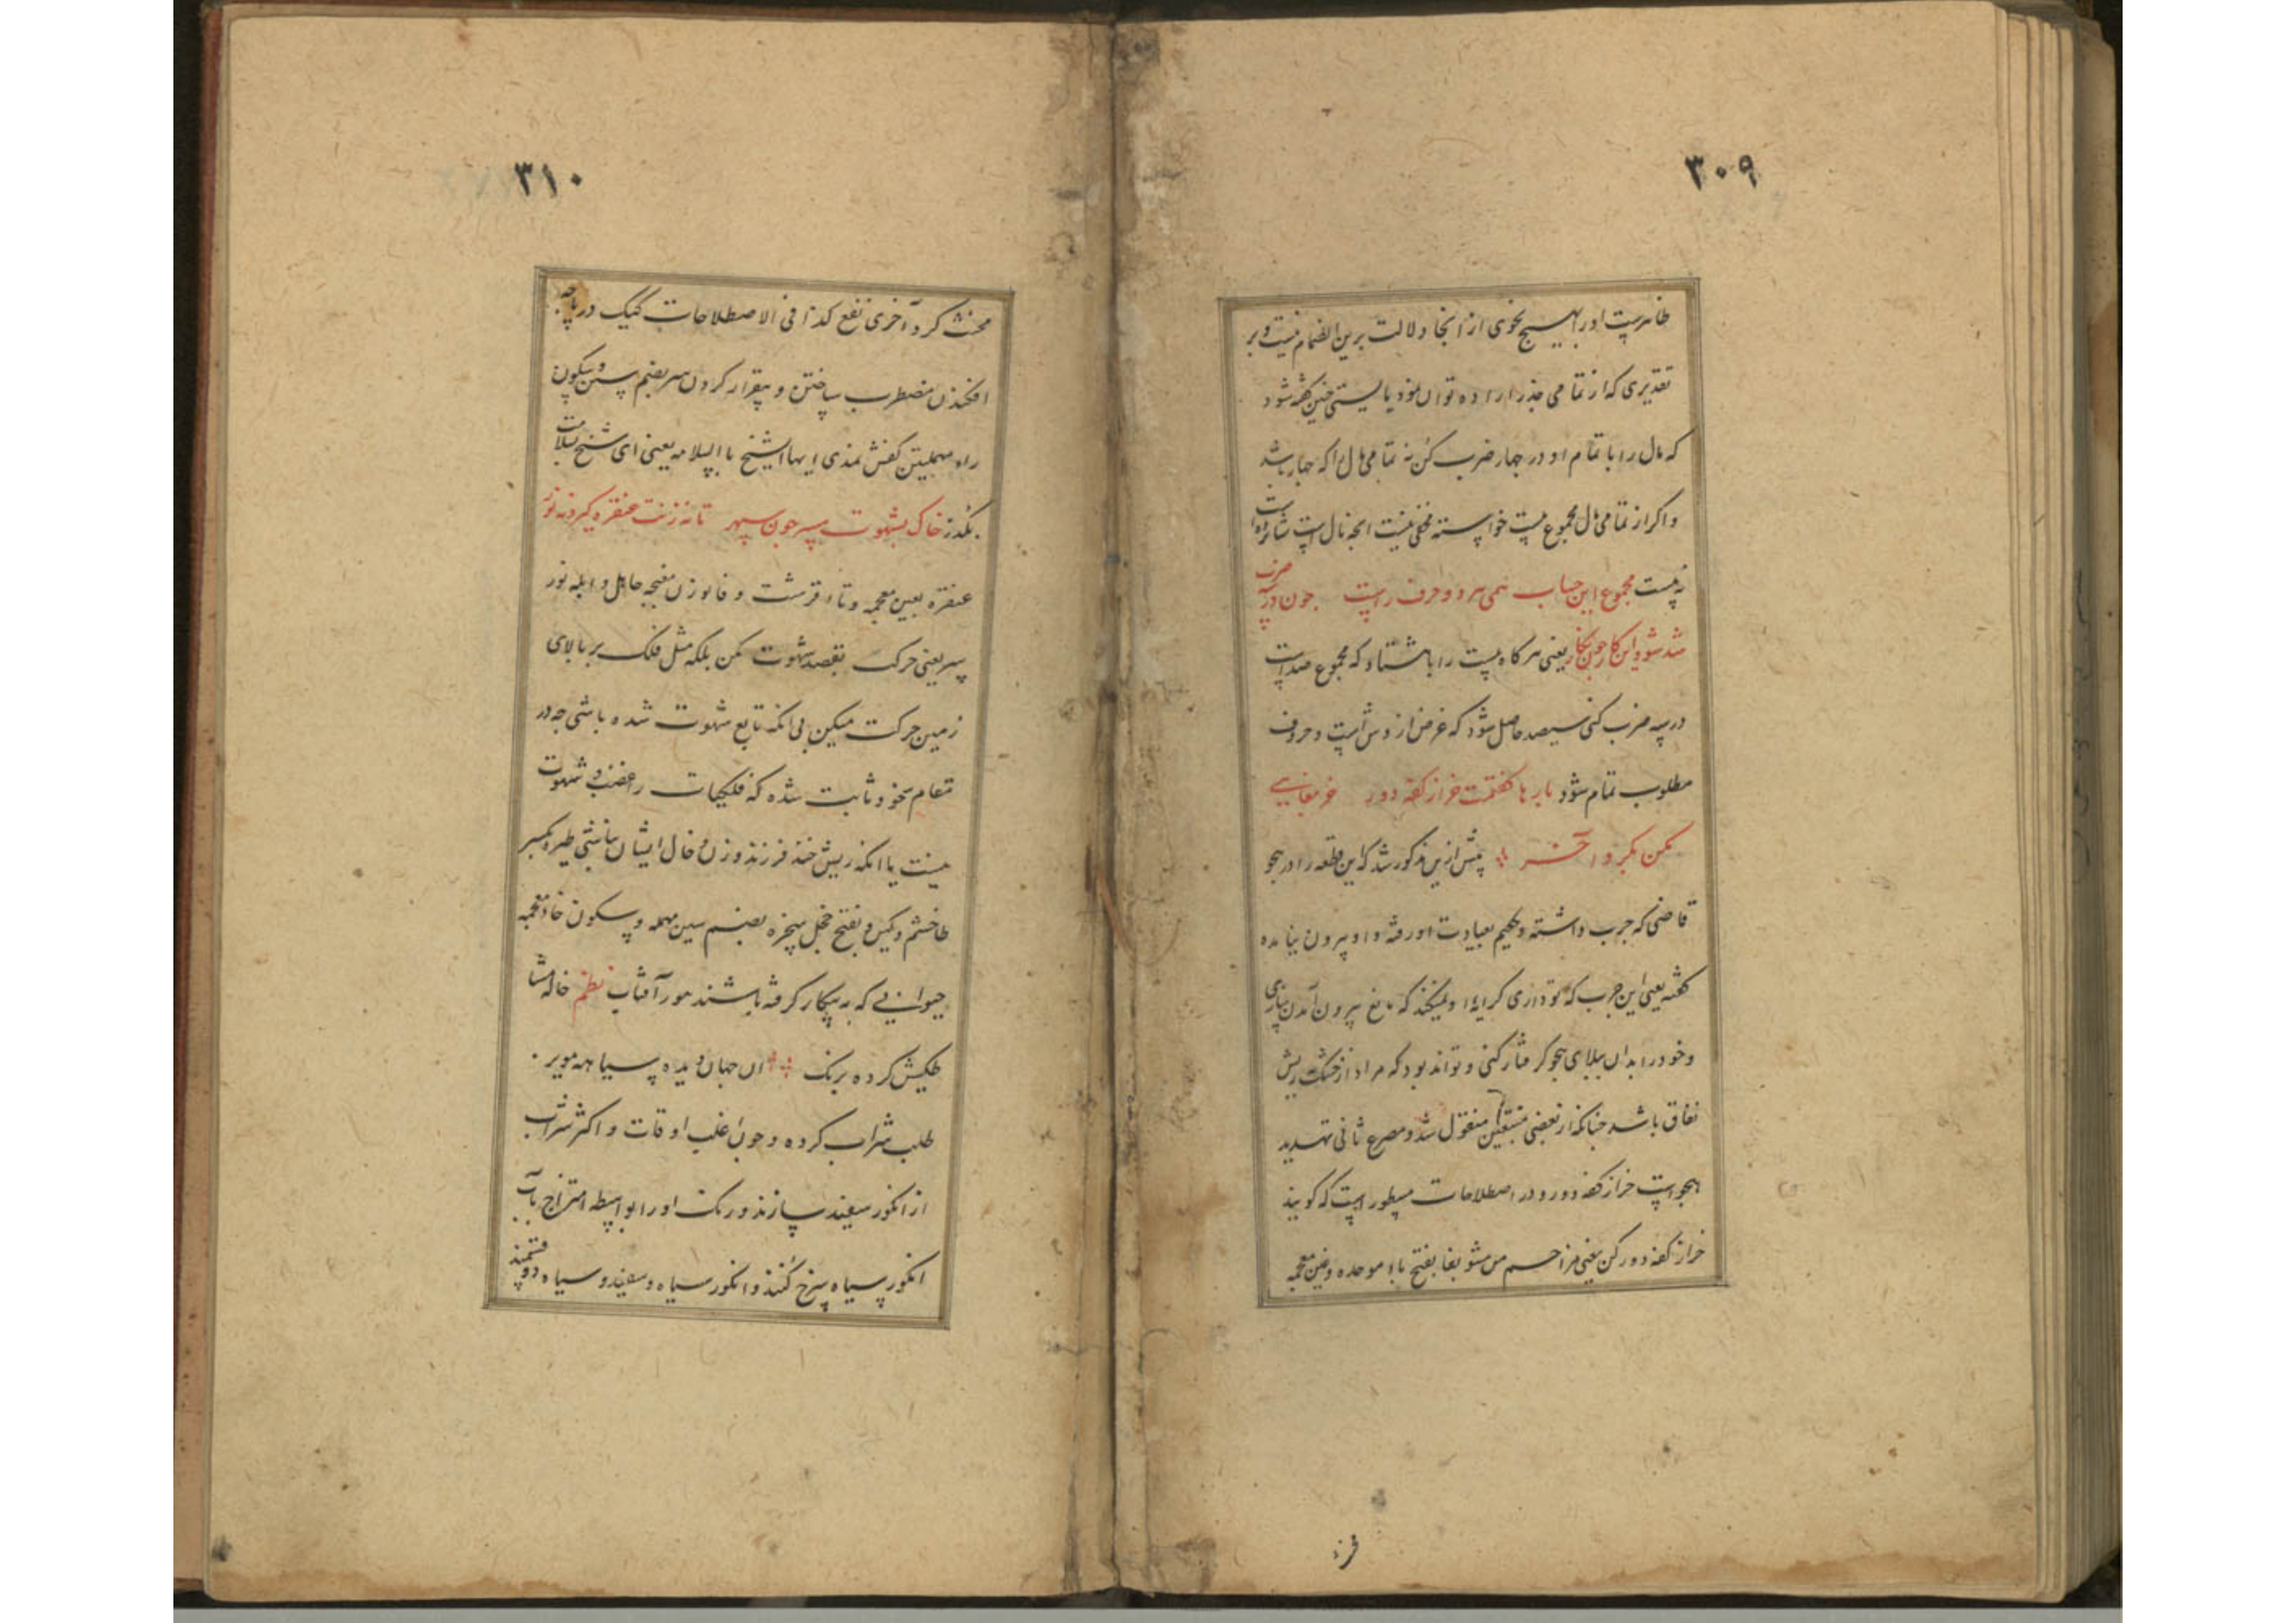 ۳۰۹
ظاهرست او را بهیچ نحوی از انجا دلالت برین انضمام نیست و بر
تقدیری که از تمامی جذر اراده توان نمود بایستی چنین گفته شود
که مال را با تمام او در چهار ضرب کن نه تمامی مال را که چهار باشد
و اکر از تمامی مال مجموع بیست خواسته مخفی نیست انچه مال است شانزده است
نه بیست مجموع این حساب نمی هر دو حرف راست چون در سه ضرب
شد شود این کار چون نکار یعنی هر کاه بیست را با هشتاد که مجموع صد است
در سه ضرب کنی سیصد حاصل شود که غرض از وش است و حروف
مطلوب تمام شود بارها کفتمت خر از کفه دور خر مغانی
مکن مکیر و اخر پیش ازین مذکور شد که این قطعه را در هجو
قاضی که جرب داشته و حکیم بعیادت او رفته و او بیرون نیامده
کفته یعنی این جرب که تو داری کرا یه او نمیکند که مانع بیرون آمدن سازی
و خود را بدان ببلای هجو کرفتار کنی و تواند بود که مراد از خشک ریش
نفاق باشد چنانکه از بعضی متتبعین منقول شد و مصرع ثانی تهدید
بهجو است خر از کفه دور و در اصطلاحات مسطور است که کویند
خر از کفه دور کن یعنی مزاحم من مشو بغا بفتح باء موحده و غین معجمه
۳۱۰
مخنث کرد آخری نفع کذا فی الاصطلاحات کیک در پاچه
افکندن مضطرب ساختن و بیقرار کردن سر بضم سین و سکون
راء مهملتین کفش نمدی ایها الشیخ با السلامه یعنی ای شیخ بسلامت
بکذر خاک بشهوت مسپر چون سپهر تا نه زنت عنفره کیرد نه نور
عنفره بعین معجمه و تاء قرشت و فا بوزن مغبچه جاهل و ابله نور
سپر یعنی حرکت بقصد شهوت مکن بلکه مثل فلک بر بالای
زمین حرکت میکن بی انکه تابع شهوت شده باشی چه در
مقام خود ثابت شده که فلکیات را غضب و شهوت
نیست یا انکه ریش خند فرزند و زن و خال ایشان نباشی طیره بکسر
طا خشم و کین و بفتح خجل سخره بضم سین مهمله و سکون خاء معجمه
حیوانی که به بیکار کرفته باشند مور آفتاب نظم خاله
طکیش کرده برنک ان جهان دیده سیاهه مویر
طلب شراب کرده و چون اغلب اوقات و اکثر شراب
از انکور سفید سازند و رنک او را بواسطه امتزاج بآب
انکور سیاه سرخ کنند و انکور سیاه و سفید و سیاه دو قسمند